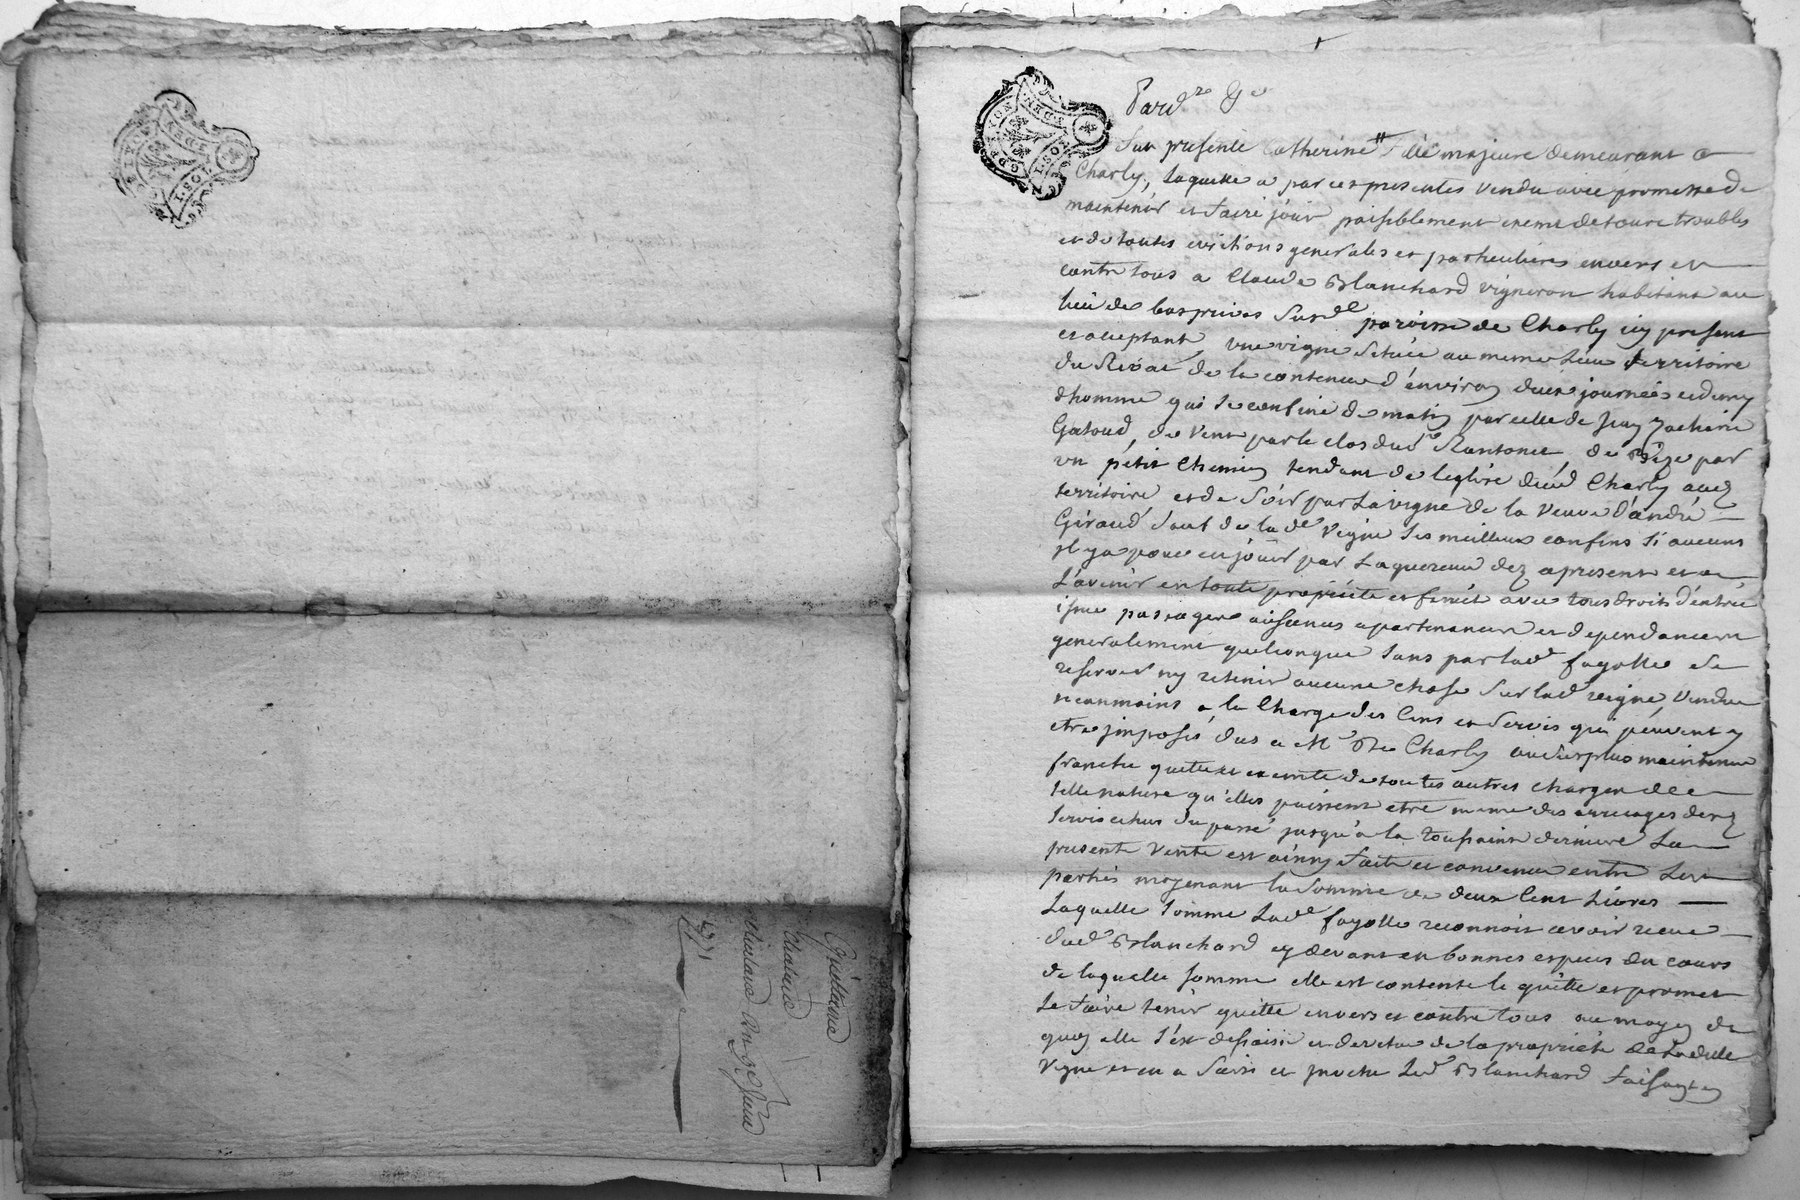 GDE LYON
I·SOL
GDE LYON
I·SOL
Quittance
1771
Pard.re
fut presente Catherine fille majeure demeurant a
Charly, laquelle a par ces presentes vendu avec promesse de
maintenir et faire jouir paisiblement exemt de tous troubles
et de toutes evictions generales et particulieres envers et
contre tous a Claude Blanchard vigneron habitant au
lieu de parroisse de Charly icy present
et acceptant, une vigne scituée au meme lieu territoire
du de la contenue d'environ deux journées et demy
d'homme qui se confine de matin par celle de Jean Zacharie
Gatoud, de vent par le clos du s.r de Bize par
un petit chemin tendant de leglise dud Charly aud
territoire et de soir par la vigne de la veuve d'andré
Giraud sauf de lad.e vigne ses meilleux confins si aucuns
il y a pour en jouir par lacquereur dez apresent et a
l'avenir en toute propriété et avec tous droits d'entrée
issue passages aisances apartenances et dependances
generalement quelconque sans par lad.e fayolle se
reserver ny retenir aucune chose sur lad.e vigne, vendue
neanmoins a la charge des cens et servis qui peuvent y
etre imposés dus a M.r De Charly au surplus maintenue
franche quitte et exemte de toutes autres charges de
telle nature qu'elles puissent etre meme des arrerages desd
servis echus du passé jusqu'a la toussaint derniere La
presente vente est ainsy faite et convenue entre les
parties moyenant la somme de deux cent livres
Laquelle somme lad.e fayolle reconnoit avoir recue
dud Blanchard cy devant en bonnes especes du cours
de laquelle somme elle est contente le quitte et promet
le faire tenir quitte envers et contre tous au moyen de
quoy elle s'est dessaisie et devetue de la propriété de ladite
vigne et en a saisi et led Blanchard faisant